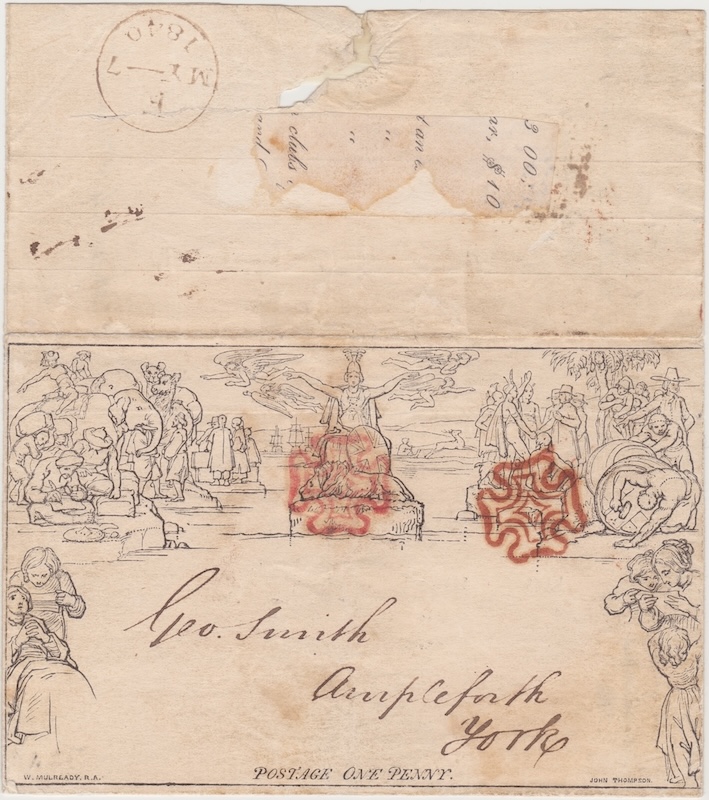 1840
MY 7
F
3 00;
ar, $10
tan
"
"
clubs
and
Geo. Smith
Ampleforth
York
W. MULREADY, R.A.
POSTAGE ONE PENNY.
JOHN THOMPSON.